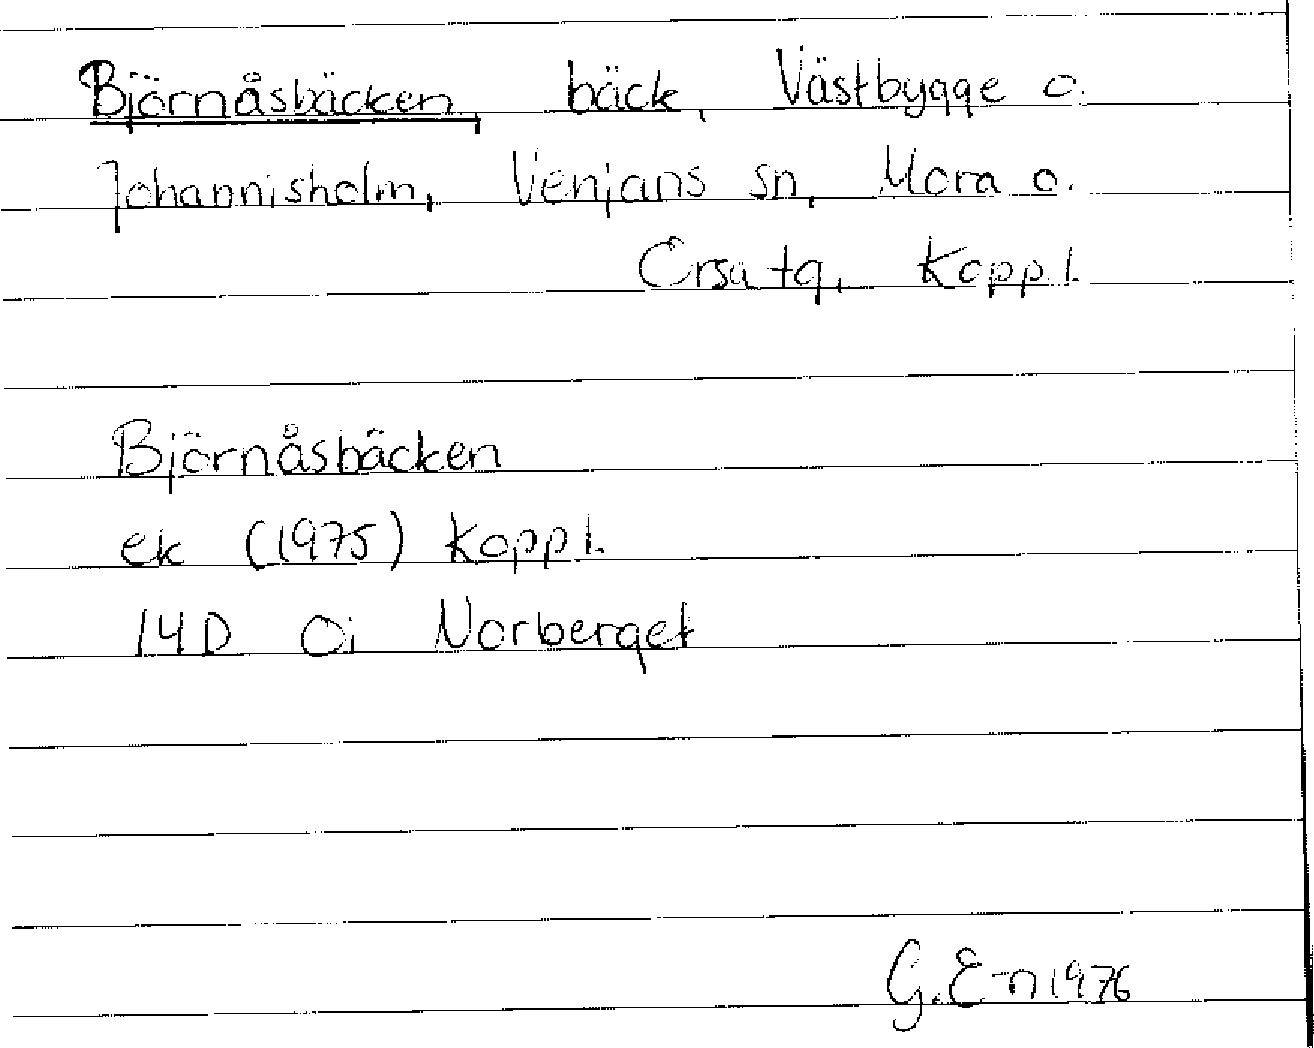 Björnåsbäcken, bäck, Västbygge o.
Johannisholm, Venjans sn, Mora o.
Orsa tg, Kopp.l.
Björnåsbäcken
ek (1975) Kopp l.
14D 0i Norberget
G.E-n 1976